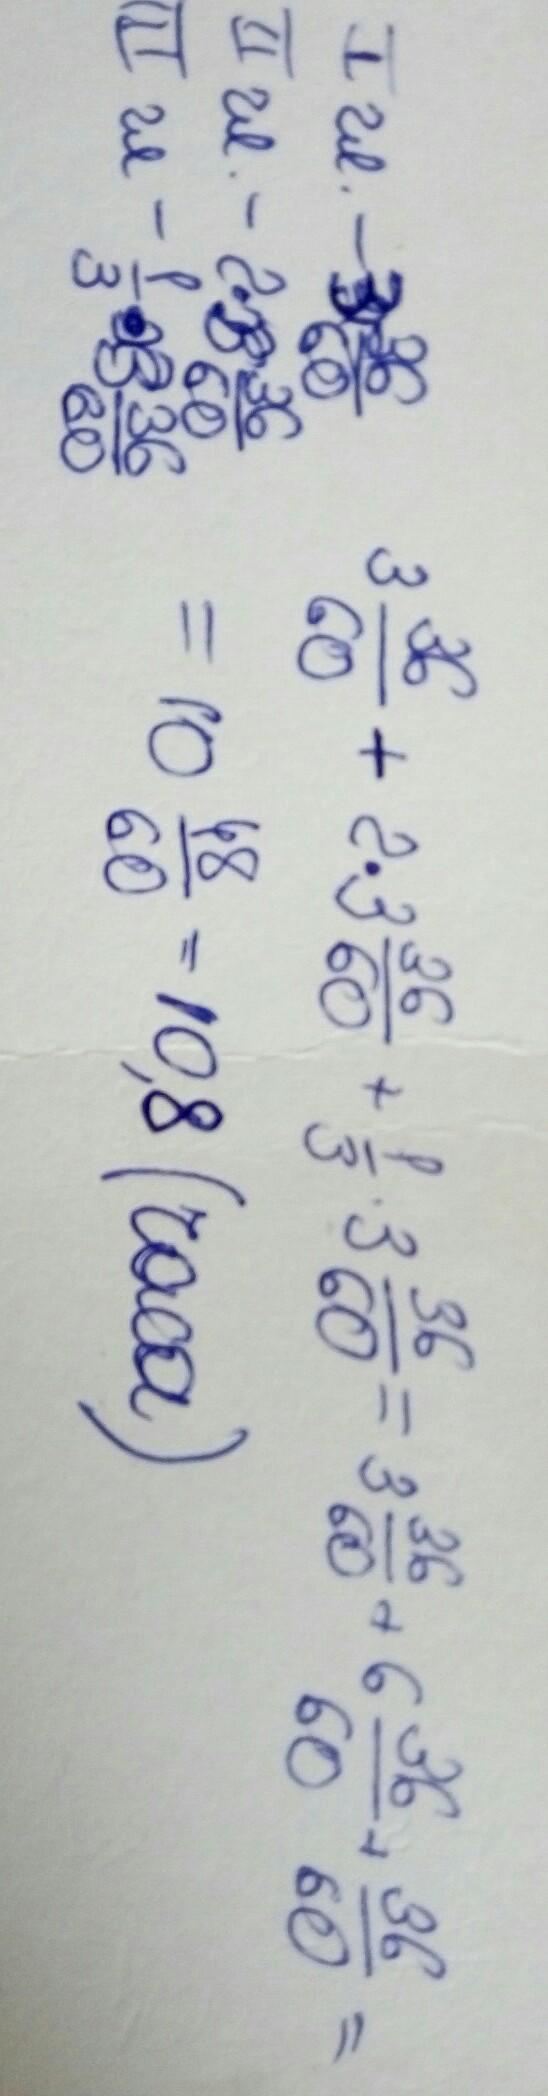 I - 3 36/60
II - 2·3 36/60
III - 1/3 · 3 36/60
3 36/60 + 2·3 36/60 + 1/3 · 3 36/60 = 3 36/60 + 6 36/60 + 36/60 =
= 10 48/60 = 10,8 (часа)